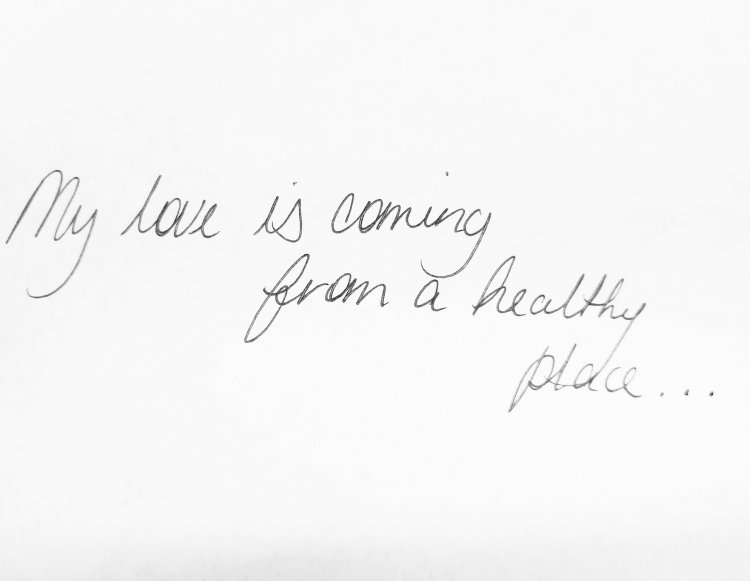 My love is coming
from a healthy
place...